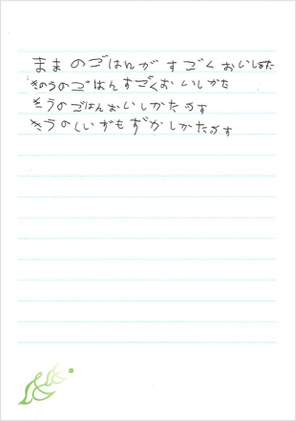 ままのごはんがすごくおいしかた
きのうのごはんすごくおいしかた
きうのごはんおいしかたのす
きうのくいずもずかしかたのす